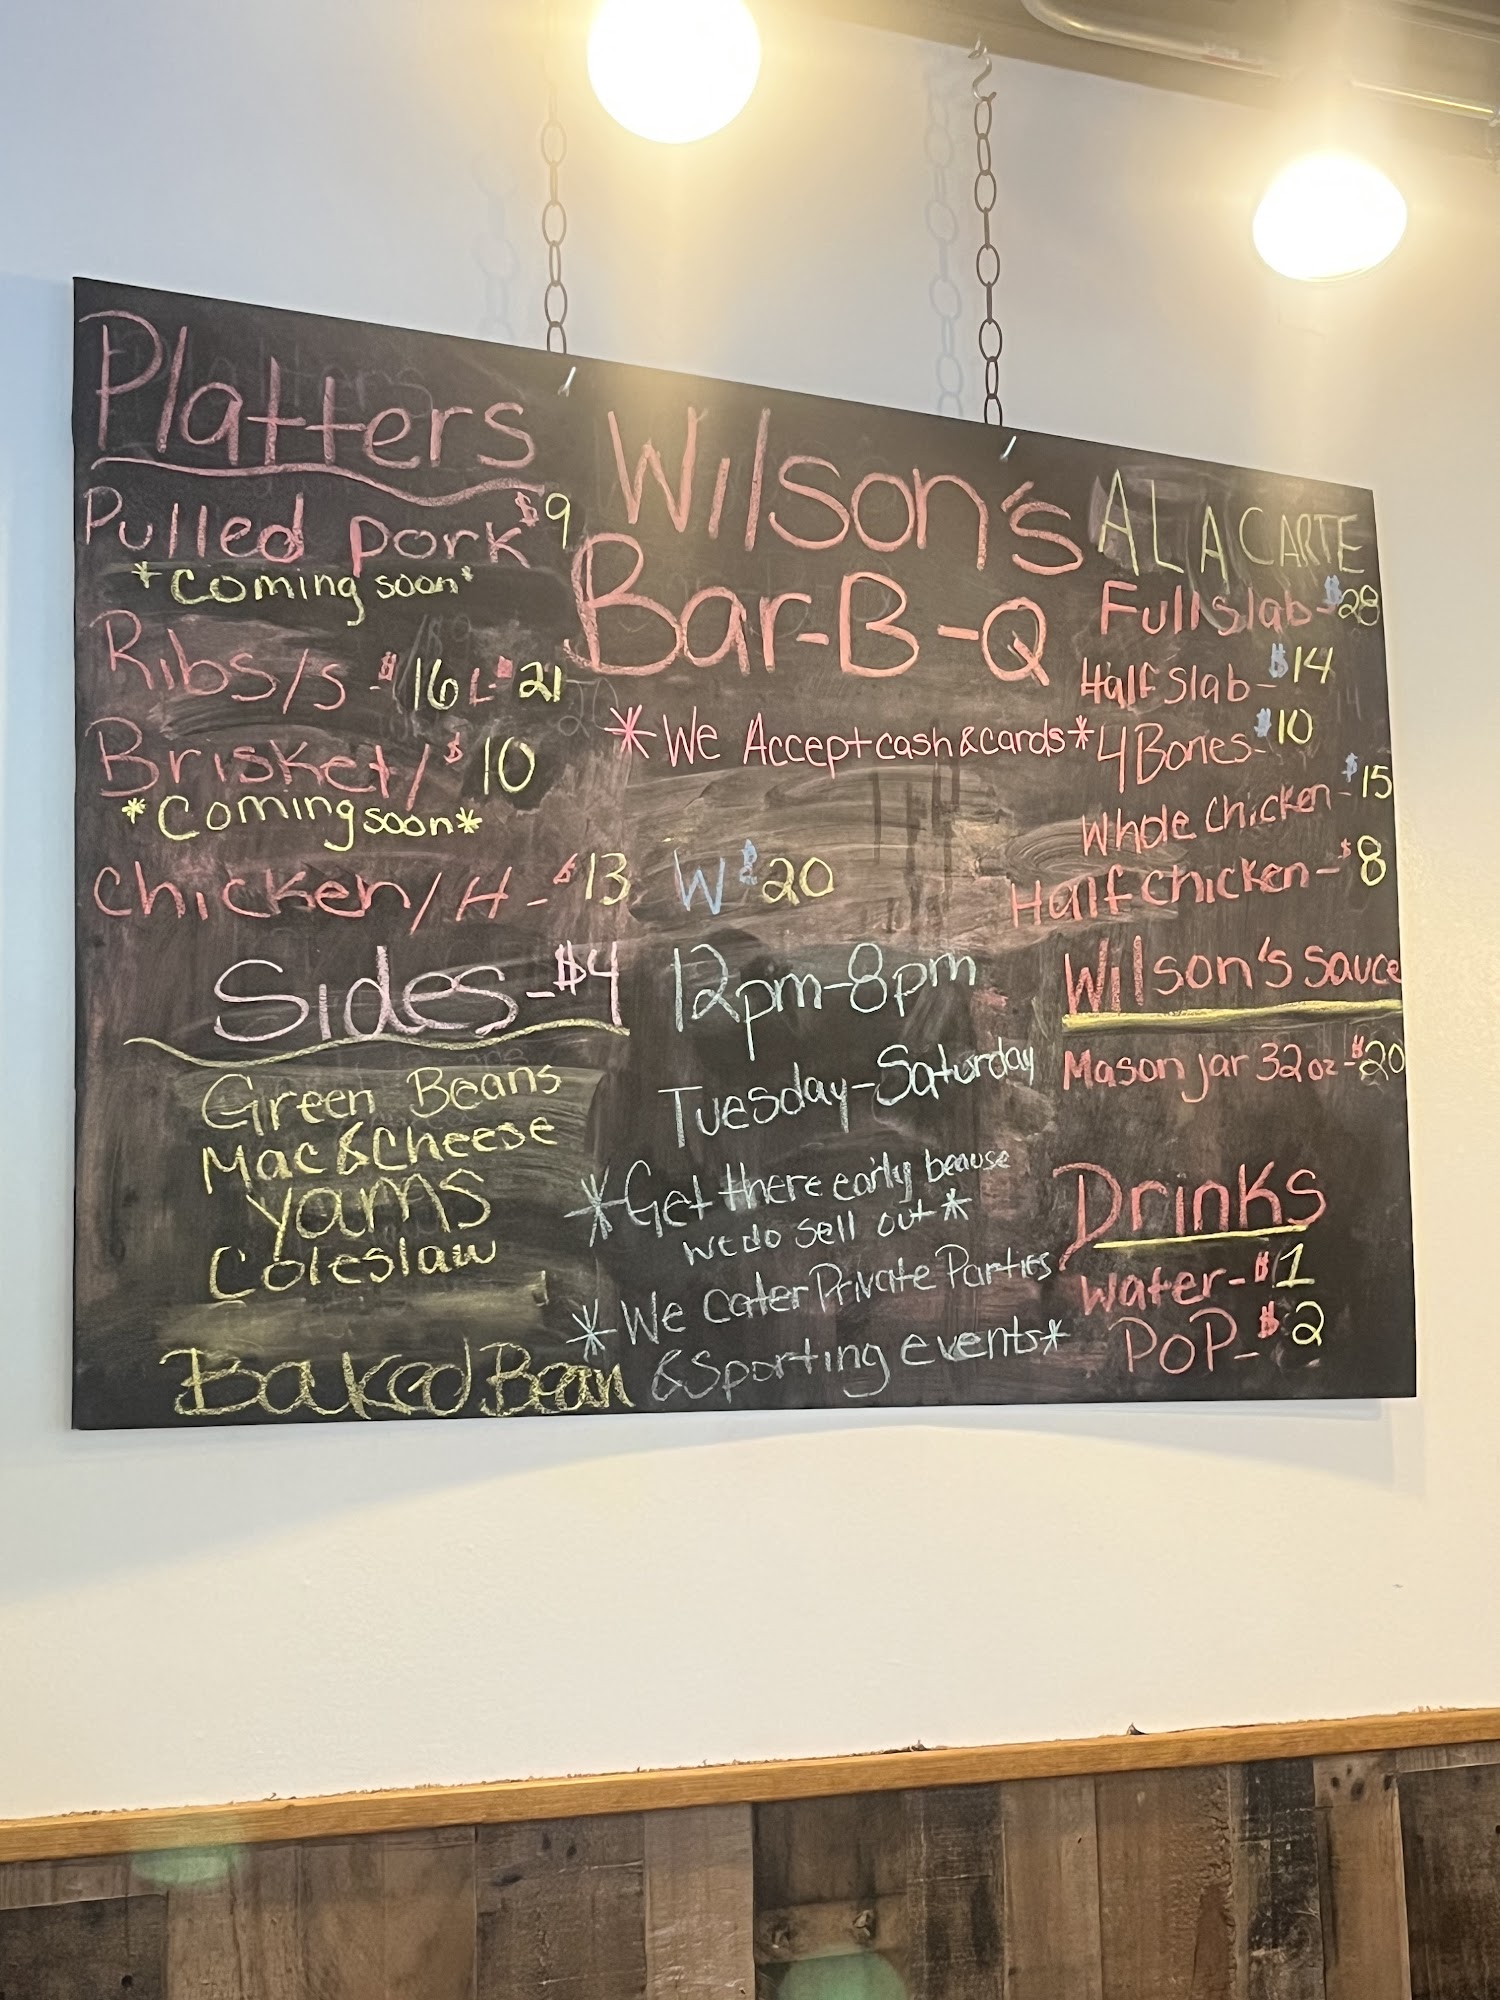 Platters
Pulled pork $9
*Coming soon*
Ribs/s - $16 L-$21
Brisket/$10
*Coming soon*
Chicken/H - $13 W $20
Sides - $4
Green Beans
Mac & Cheese
Yams
Coleslaw
Baked Bean
Wilson's
Bar-B-Q
*We Accept cash & cards*
12pm-8pm
Tuesday-Saturday
*Get there early beause
we do sell out*
*We Cater Private Parties
& Sporting events*
A LA CARTE
Full slab - $28
Half Slab - $14
4 Bones - $10
Whole Chicken - $15
Half chicken - $8
Wilson's sauce
Mason jar 32oz - $20
Drinks
Water - $1
POP - $2